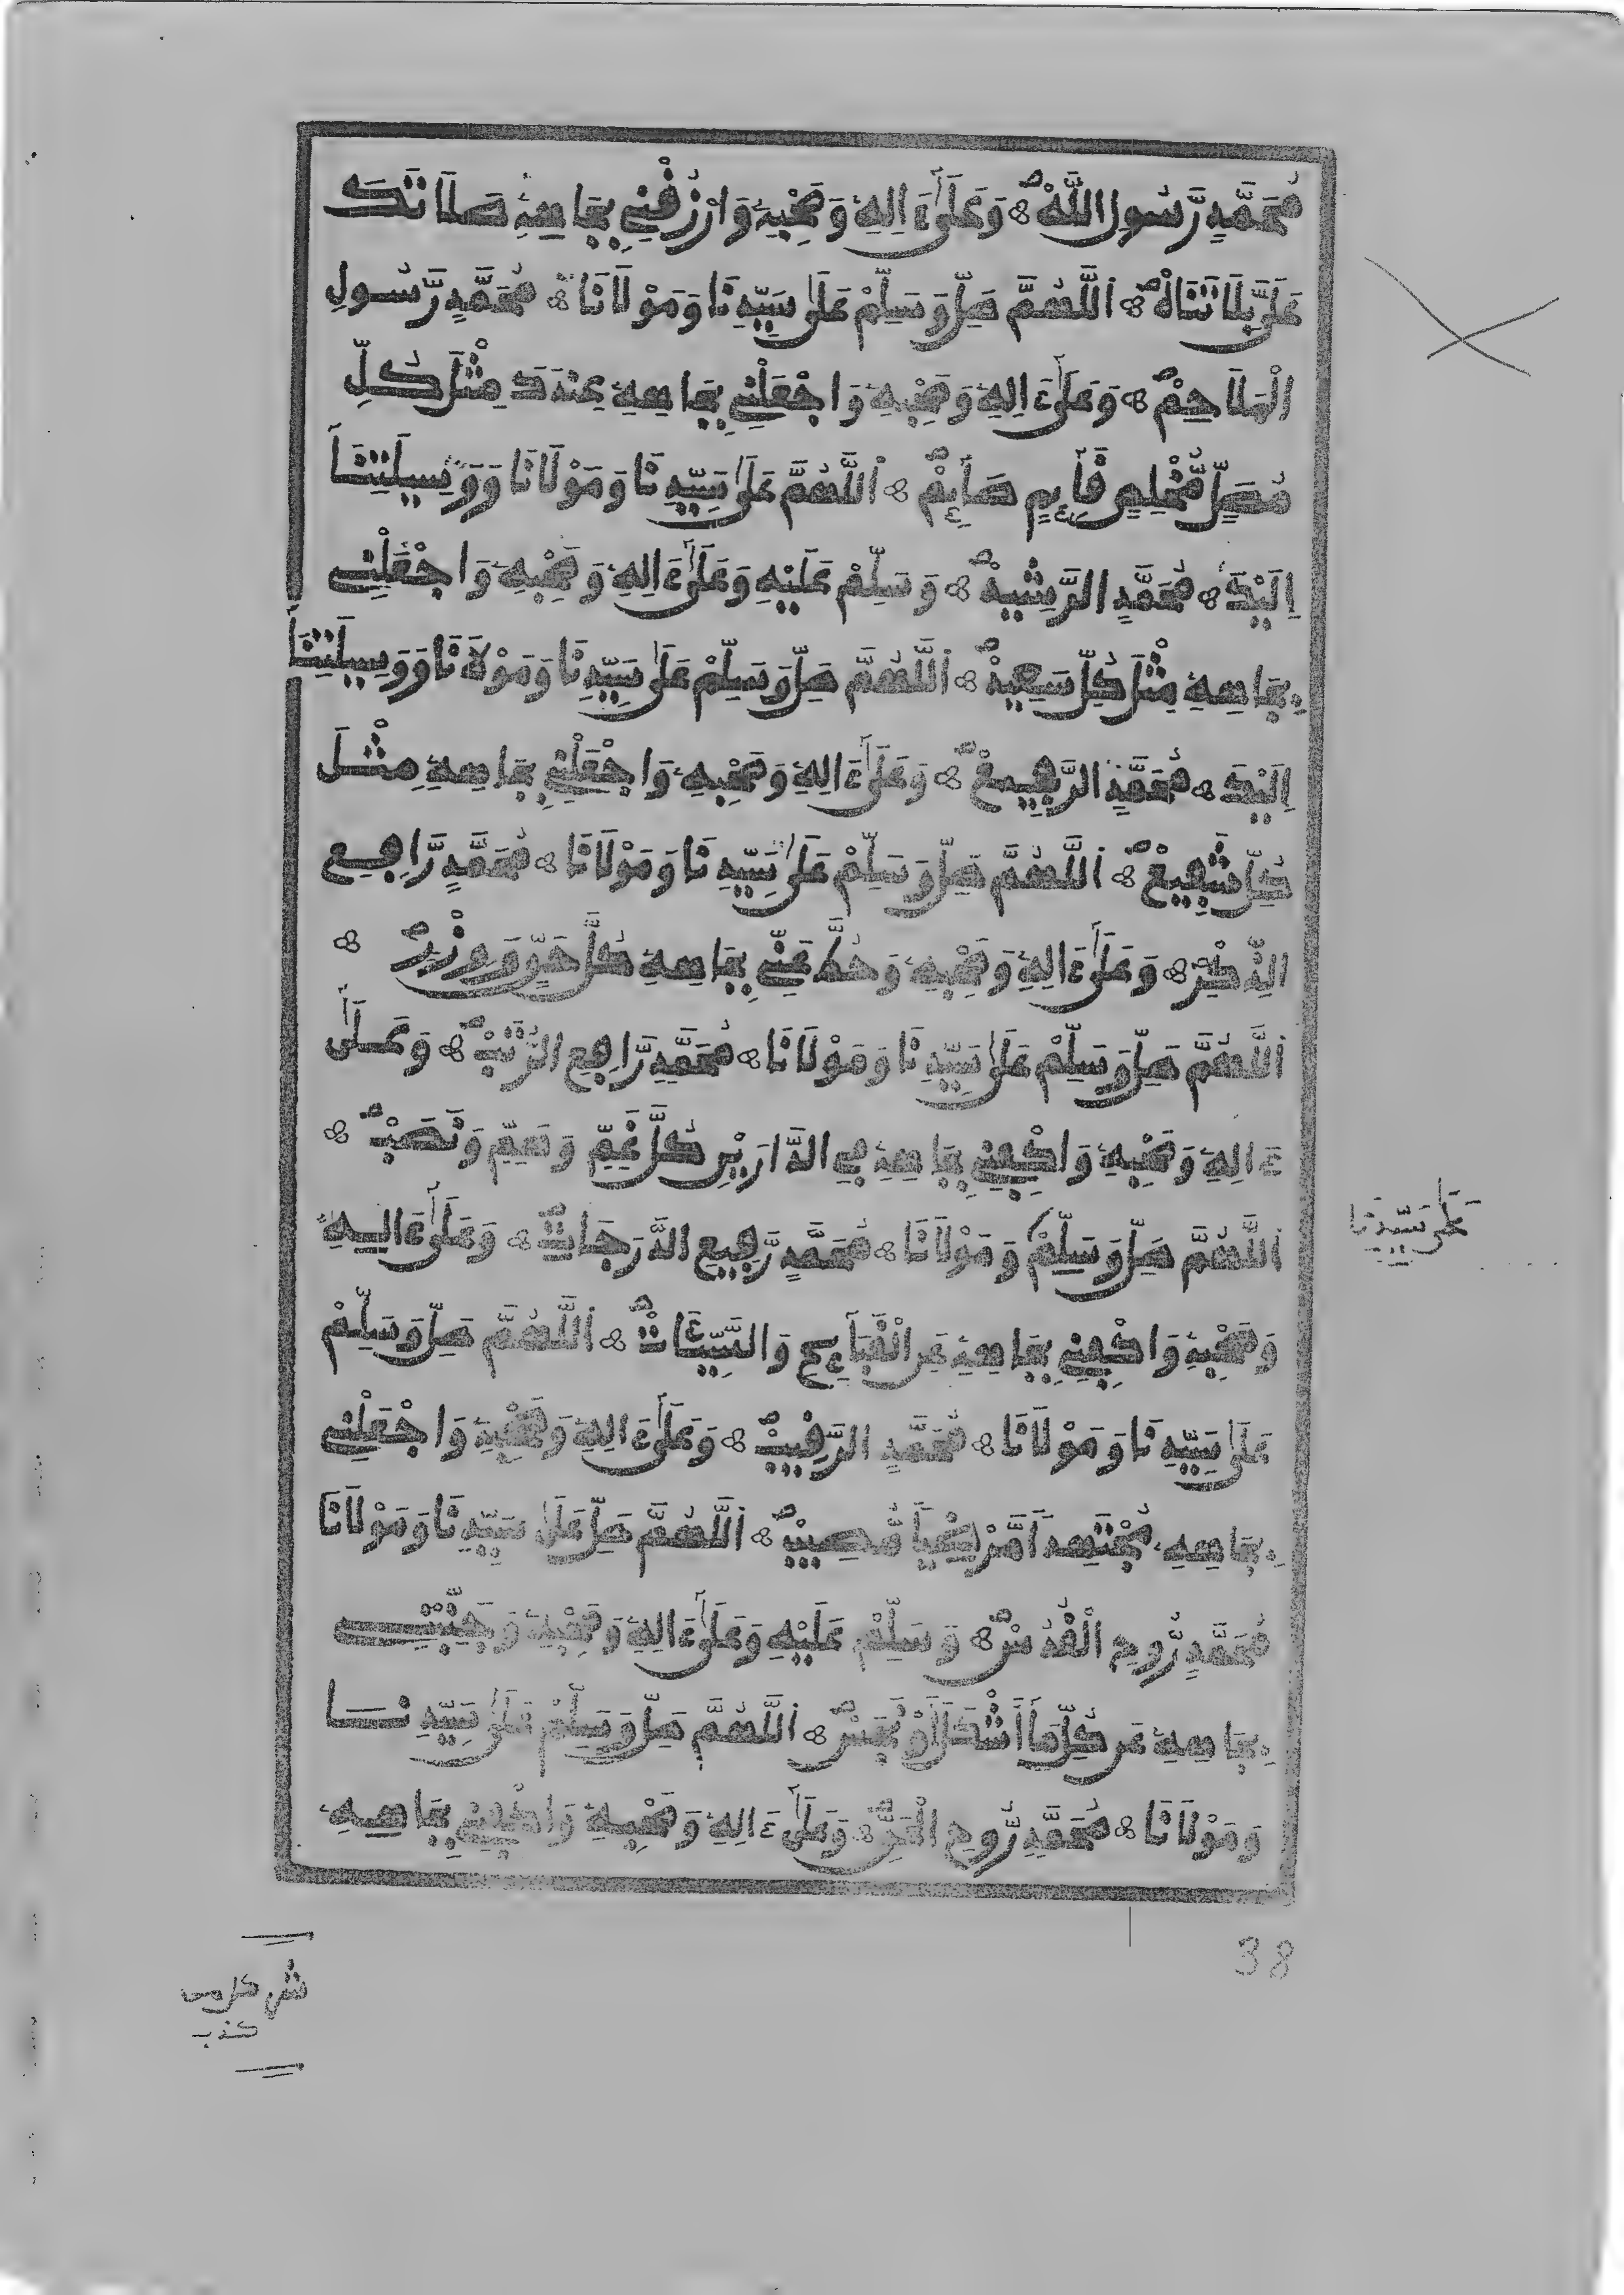 مُحَمَّدٍ رَّسُولِ اللَّهْ ۞ وَعَلَىٰٓ ءَالِهِۦ وَصَحْبِهِۦ وَارْزُقْنِي بِجَاهِهِۦ صَلَاتَكَ
عَلَيَّ بِلَا تَنَاهْ ۞ اَللَّهُمَّ صَلِّ وَسَلِّمْ عَلَىٰ سَيِّدِنَا وَمَوْلَانَا ۞ مُحَمَّدٍ رَّسُولِ
الْمَلَاحِمْ ۞ وَعَلَىٰٓ ءَالِهِۦ وَصَحْبِهِۦ وَاجْعَلْنِي بِجَاهِهِۦ عِندَكَ مِثْلَ كُلِّ
مُصَلٍّ مُّخْلِصٍ قَآئِمٍ صَآئِمْ ۞ اَللَّهُمَّ عَلَىٰ سَيِّدِنَا وَمَوْلَانَا وَوَسِيلَتِنَآ
إِلَيْكَ ۞ مُحَمَّدٍ الرَّشِيدْ ۞ وَسَلِّمْ عَلَيْهِ وَعَلَىٰٓ ءَالِهِۦ وَصَحْبِهِۦ وَاجْعَلْنِي
بِجَاهِهِۦ مِثْلَ كُلِّ سَعِيدْ ۞ اَللَّهُمَّ صَلِّ وَسَلِّمْ عَلَىٰ سَيِّدِنَا وَمَوْلَانَا وَوَسِيلَتِنَآ
إِلَيْكَ ۞ مُحَمَّدٍ الرَّفِيعْ ۞ وَعَلَىٰٓ ءَالِهِۦ وَصَحْبِهِۦ وَاجْعَلْنِي بِجَاهِهِۦ مِثْلَ
كُلِّ شَفِيعْ ۞ اَللَّهُمَّ صَلِّ وَسَلِّمْ عَلَىٰ سَيِّدِنَا وَمَوْلَانَا ۞ مُحَمَّدٍ رَّافِعِ
الذِّكْرْ ۞ وَعَلَىٰٓ ءَالِهِۦ وَصَحْبِهِۦ وَحُطَّ عَنِّي بِجَاهِهِۦ كُلَّ وَوِزْرْ ۞
اَللَّهُمَّ صَلِّ وَسَلِّمْ عَلَىٰ سَيِّدِنَا وَمَوْلَانَا ۞ مُحَمَّدٍ رَّافِعِ الرُّتَبْ ۞ وَعَلَىٰٓ
ءَالِهِۦ وَصَحْبِهِۦ وَاكْفِنِي بِجَاهِهِۦ فِي الدَّارَيْنِ كُلَّ غَمٍّ وَهَمٍّ وَنَصَبْ ۞
اَللَّهُمَّ صَلِّ وَسَلِّمْ وَمَوْلَانَا ۞ مُحَمَّدٍ رَّفِيعِ الدَّرَجَاتْ ۞ وَعَلَىٰٓ ءَالِهِۦ
عَلَىٰ سَيِّدِنَا
وَصَحْبِهِۦ وَاكْفِنِي بِجَاهِهِۦ عَنِ الْقَبَآئِحِ وَالسَّيِّئَاتْ ۞ اَللَّهُمَّ صَلِّ وَسَلِّمْ
عَلَىٰ سَيِّدِنَا وَمَوْلَانَا ۞ مُحَمَّدٍ الرَّقِيبْ ۞ وَعَلَىٰٓ ءَالِهِۦ وَصَحْبِهِۦ وَاجْعَلْنِي
بِجَاهِهِۦ مُجْتَهِدًا مُّصِيبْ ۞ اَللَّهُمَّ صَلِّ عَلَىٰ سَيِّدِنَا وَمَوْلَانَا
مُحَمَّدٍ رُّوحِ الْقُدُسْ ۞ وَسَلِّمْ عَلَيْهِ وَعَلَىٰٓ ءَالِهِۦ وَصَحْبِهِۦ وَجَنِّبْنِي
بِجَاهِهِۦ عَن كُلِّ مَآ أَشْكَلَ أَوْ نَجَسْ ۞ اَللَّهُمَّ صَلِّ وَسَلِّمْ عَلَىٰ سَيِّدِنَا
وَمَوْلَانَا ۞ مُحَمَّدٍ رُّوحِ الْحَقِّ ۞ وَعَلَىٰٓ ءَالِهِۦ وَصَحْبِهِۦ وَاكْفِنِي بِجَاهِهِۦ
38